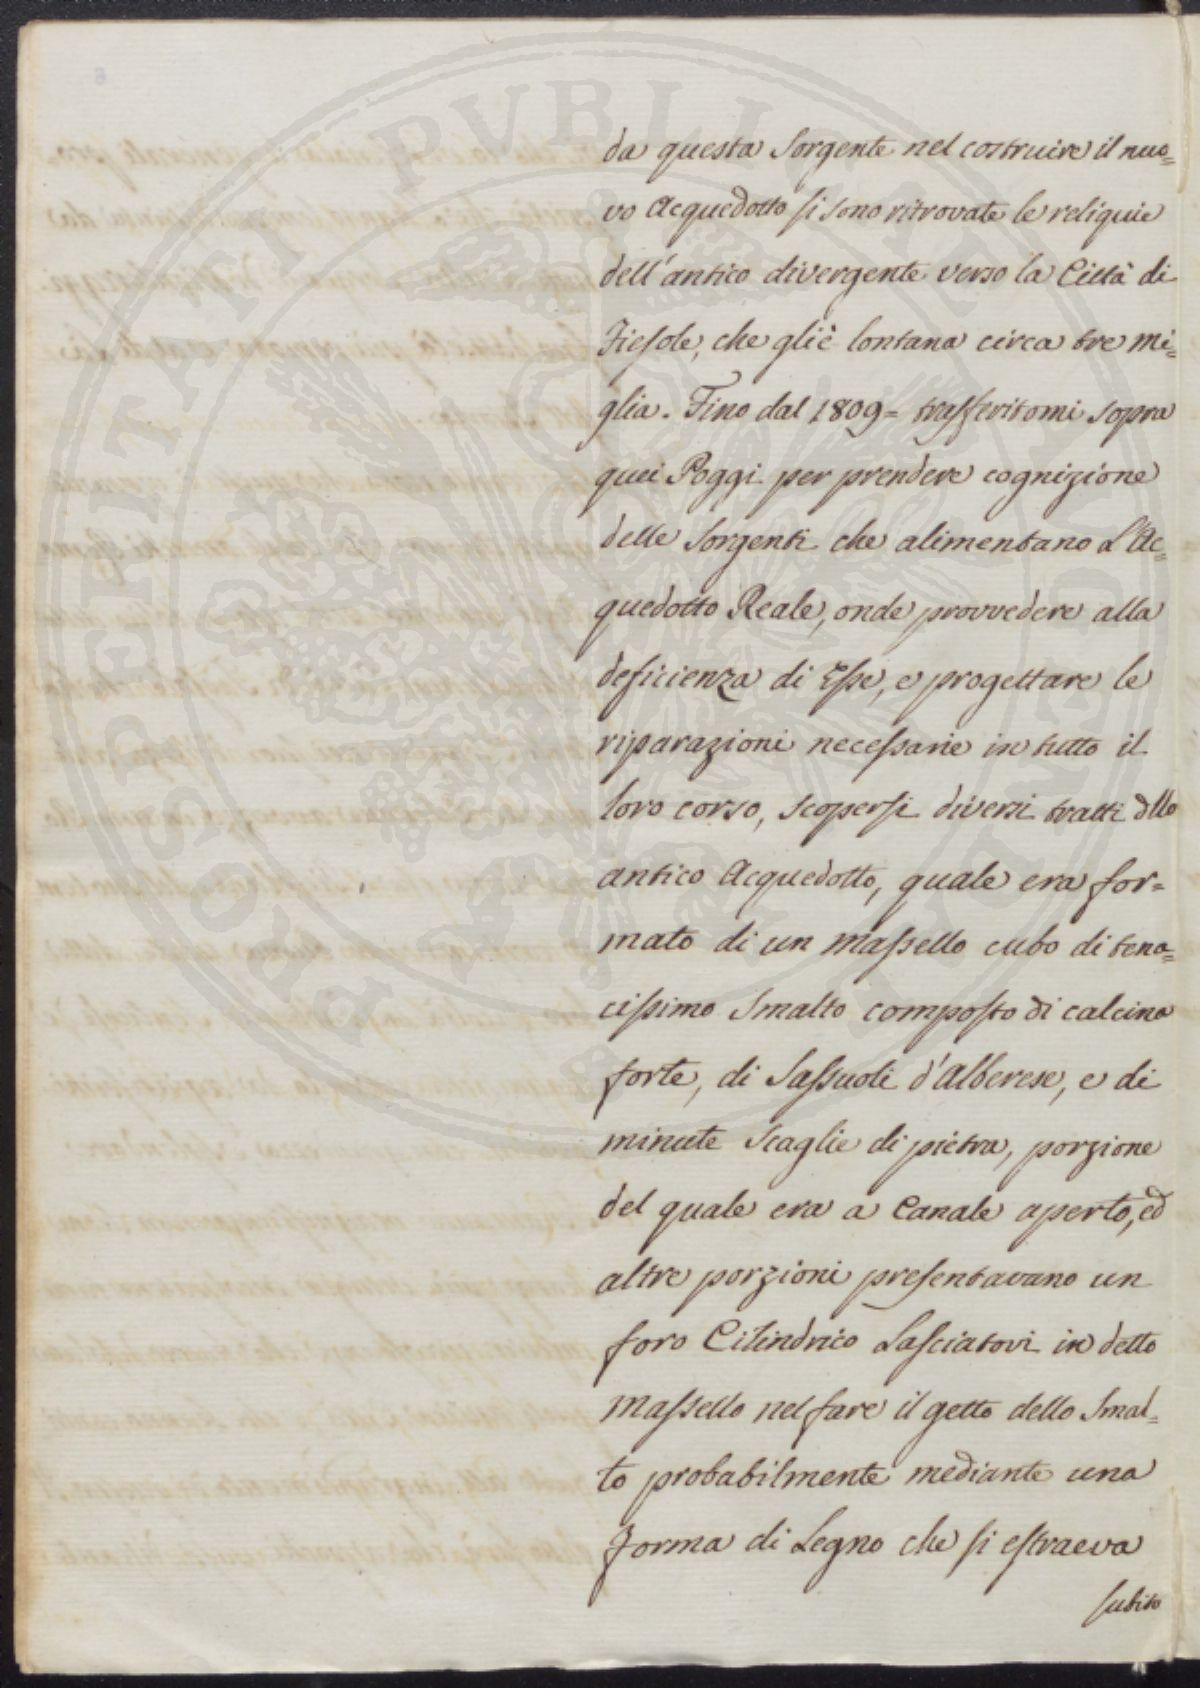 da questa Sorgente nel costruire il nuo=
vo Acquedotto si sono ritrovate le reliquie
dell'antico divergente verso la Città di
Fiesole, che gliè lontana circa tre mi=
glia. Fino dal 1809= trasferitomi sopra
quei Poggi per prendere cognizione
delle Sorgenti che alimentano L'Ac=
quedotto Reale, onde provvedere alla
deficienza di Esse, e progettare le
riparazioni necessarie in tutto il
loro corso, scopersi diversi tratti dllo
antico Acquedotto, quale era for=
mato di un massello cubo di tena=
cissimo Smalto composto di calcina
forte, di Sassuoli d'Alberese, e di
minute Scaglie di pietra, porzione
del quale era a Canale aperto, ed
altre porzioni presentavano un
foro Cilindrico Lasciatovi in detto
massello nel fare il getto dello Smal=
to probabilmente mediante una
forma di Legno che si estraeva
subito
PROSPERITATI PVBLICAE AVGENDAE